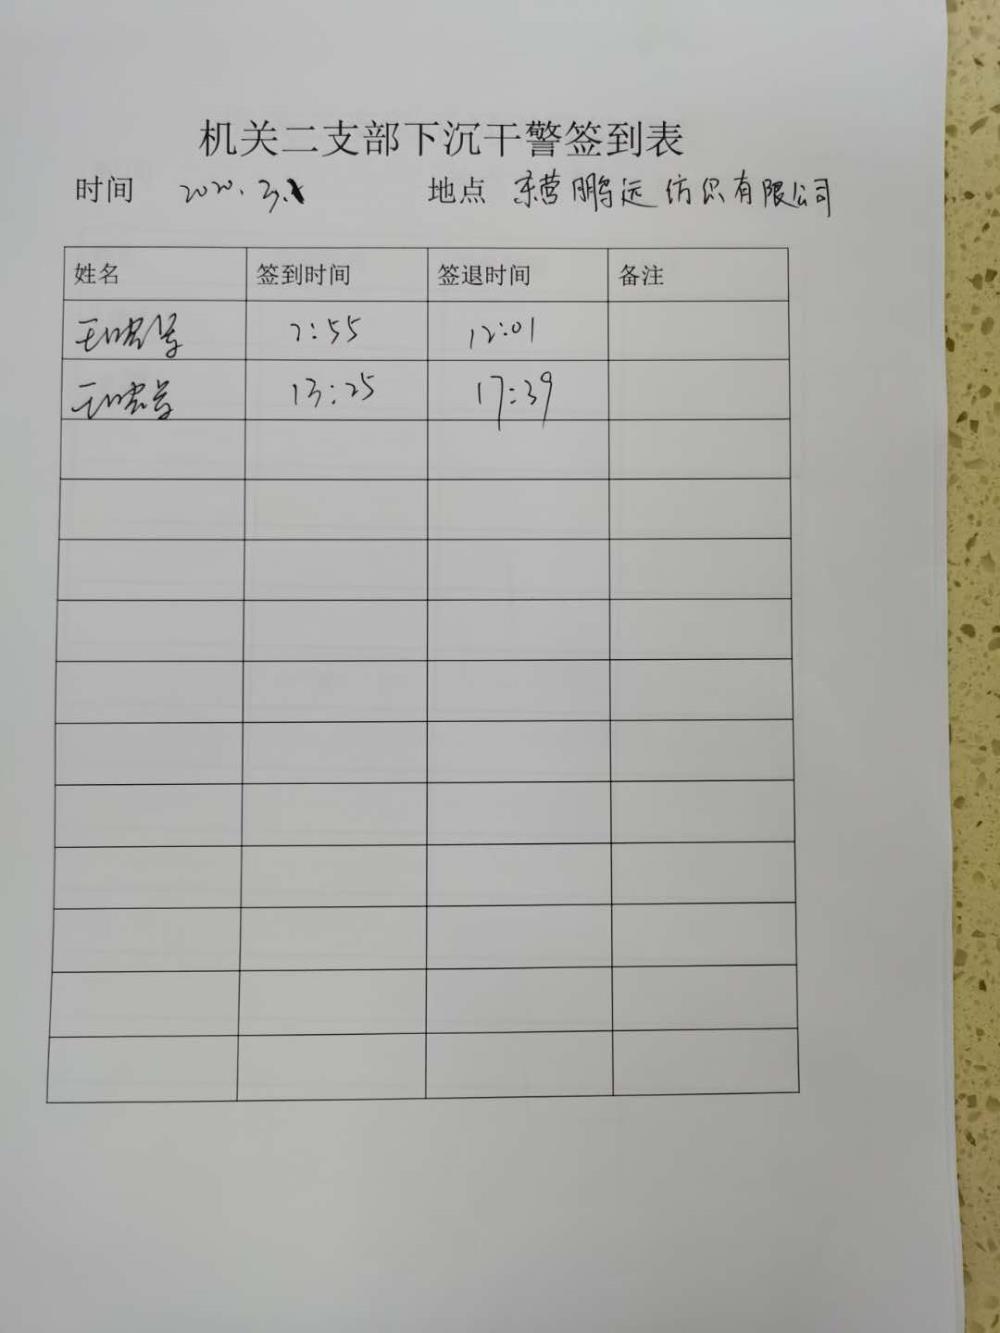 机关二支部下沉干警签到表
时间 2020.3. 地点 东营鹏远纺织有限公司
姓名 签到时间 签退时间 备注
7:55 12:01
13:25 17:39